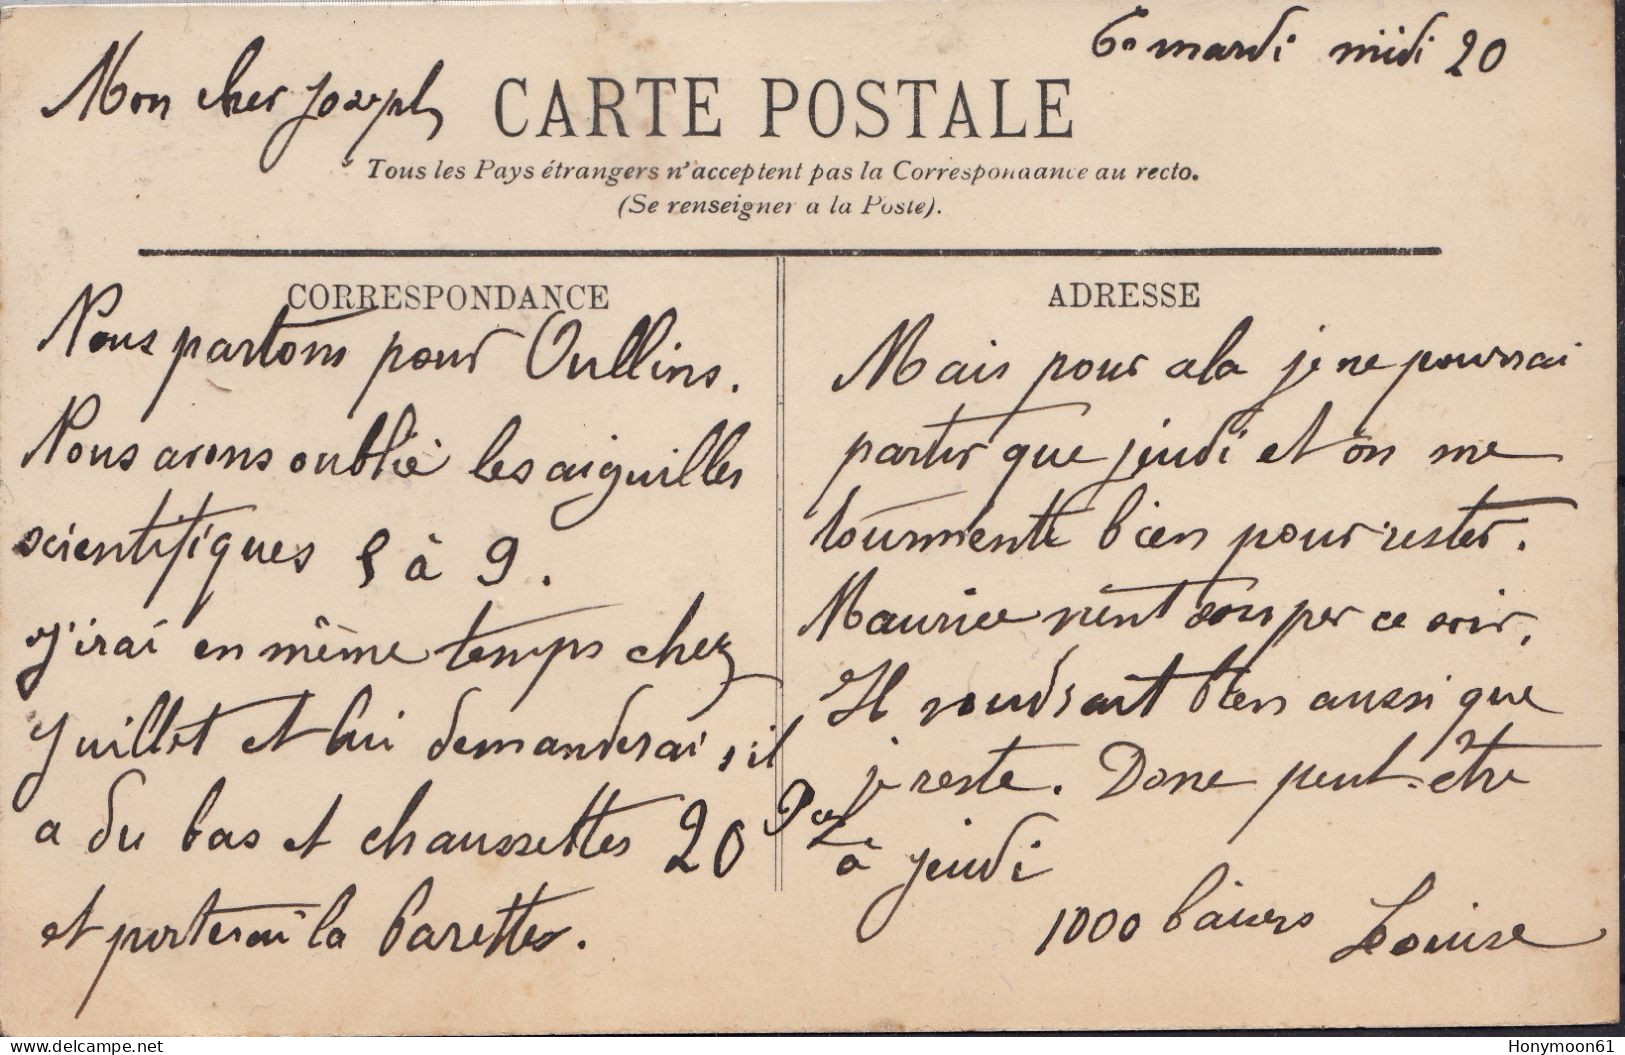 mardi midi 20
Mon cher Joseph
CARTE POSTALE
Tous les Pays étrangers n'acceptent pas la Correspondance au recto.
(Se renseigner a la Poste).
CORRESPONDANCE
Nous partons pour Oullins.
Nous avons oublié les aiguilles
scientifiques 5 à 9.
J'irai en même temps chez
Juillet et lui demanderai s'il
a du bas et chaussettes 20
et porterai la barette.
ADRESSE
Mais pour cela je ne pourrai
partir que jeudi et on me
tourmente bien pour rester.
Maurice vient souper ce soir.
Il voudrait bien aussi que
je reste. Donc peut-être
à jeudi
1000 baisers Louise
Honymoon61